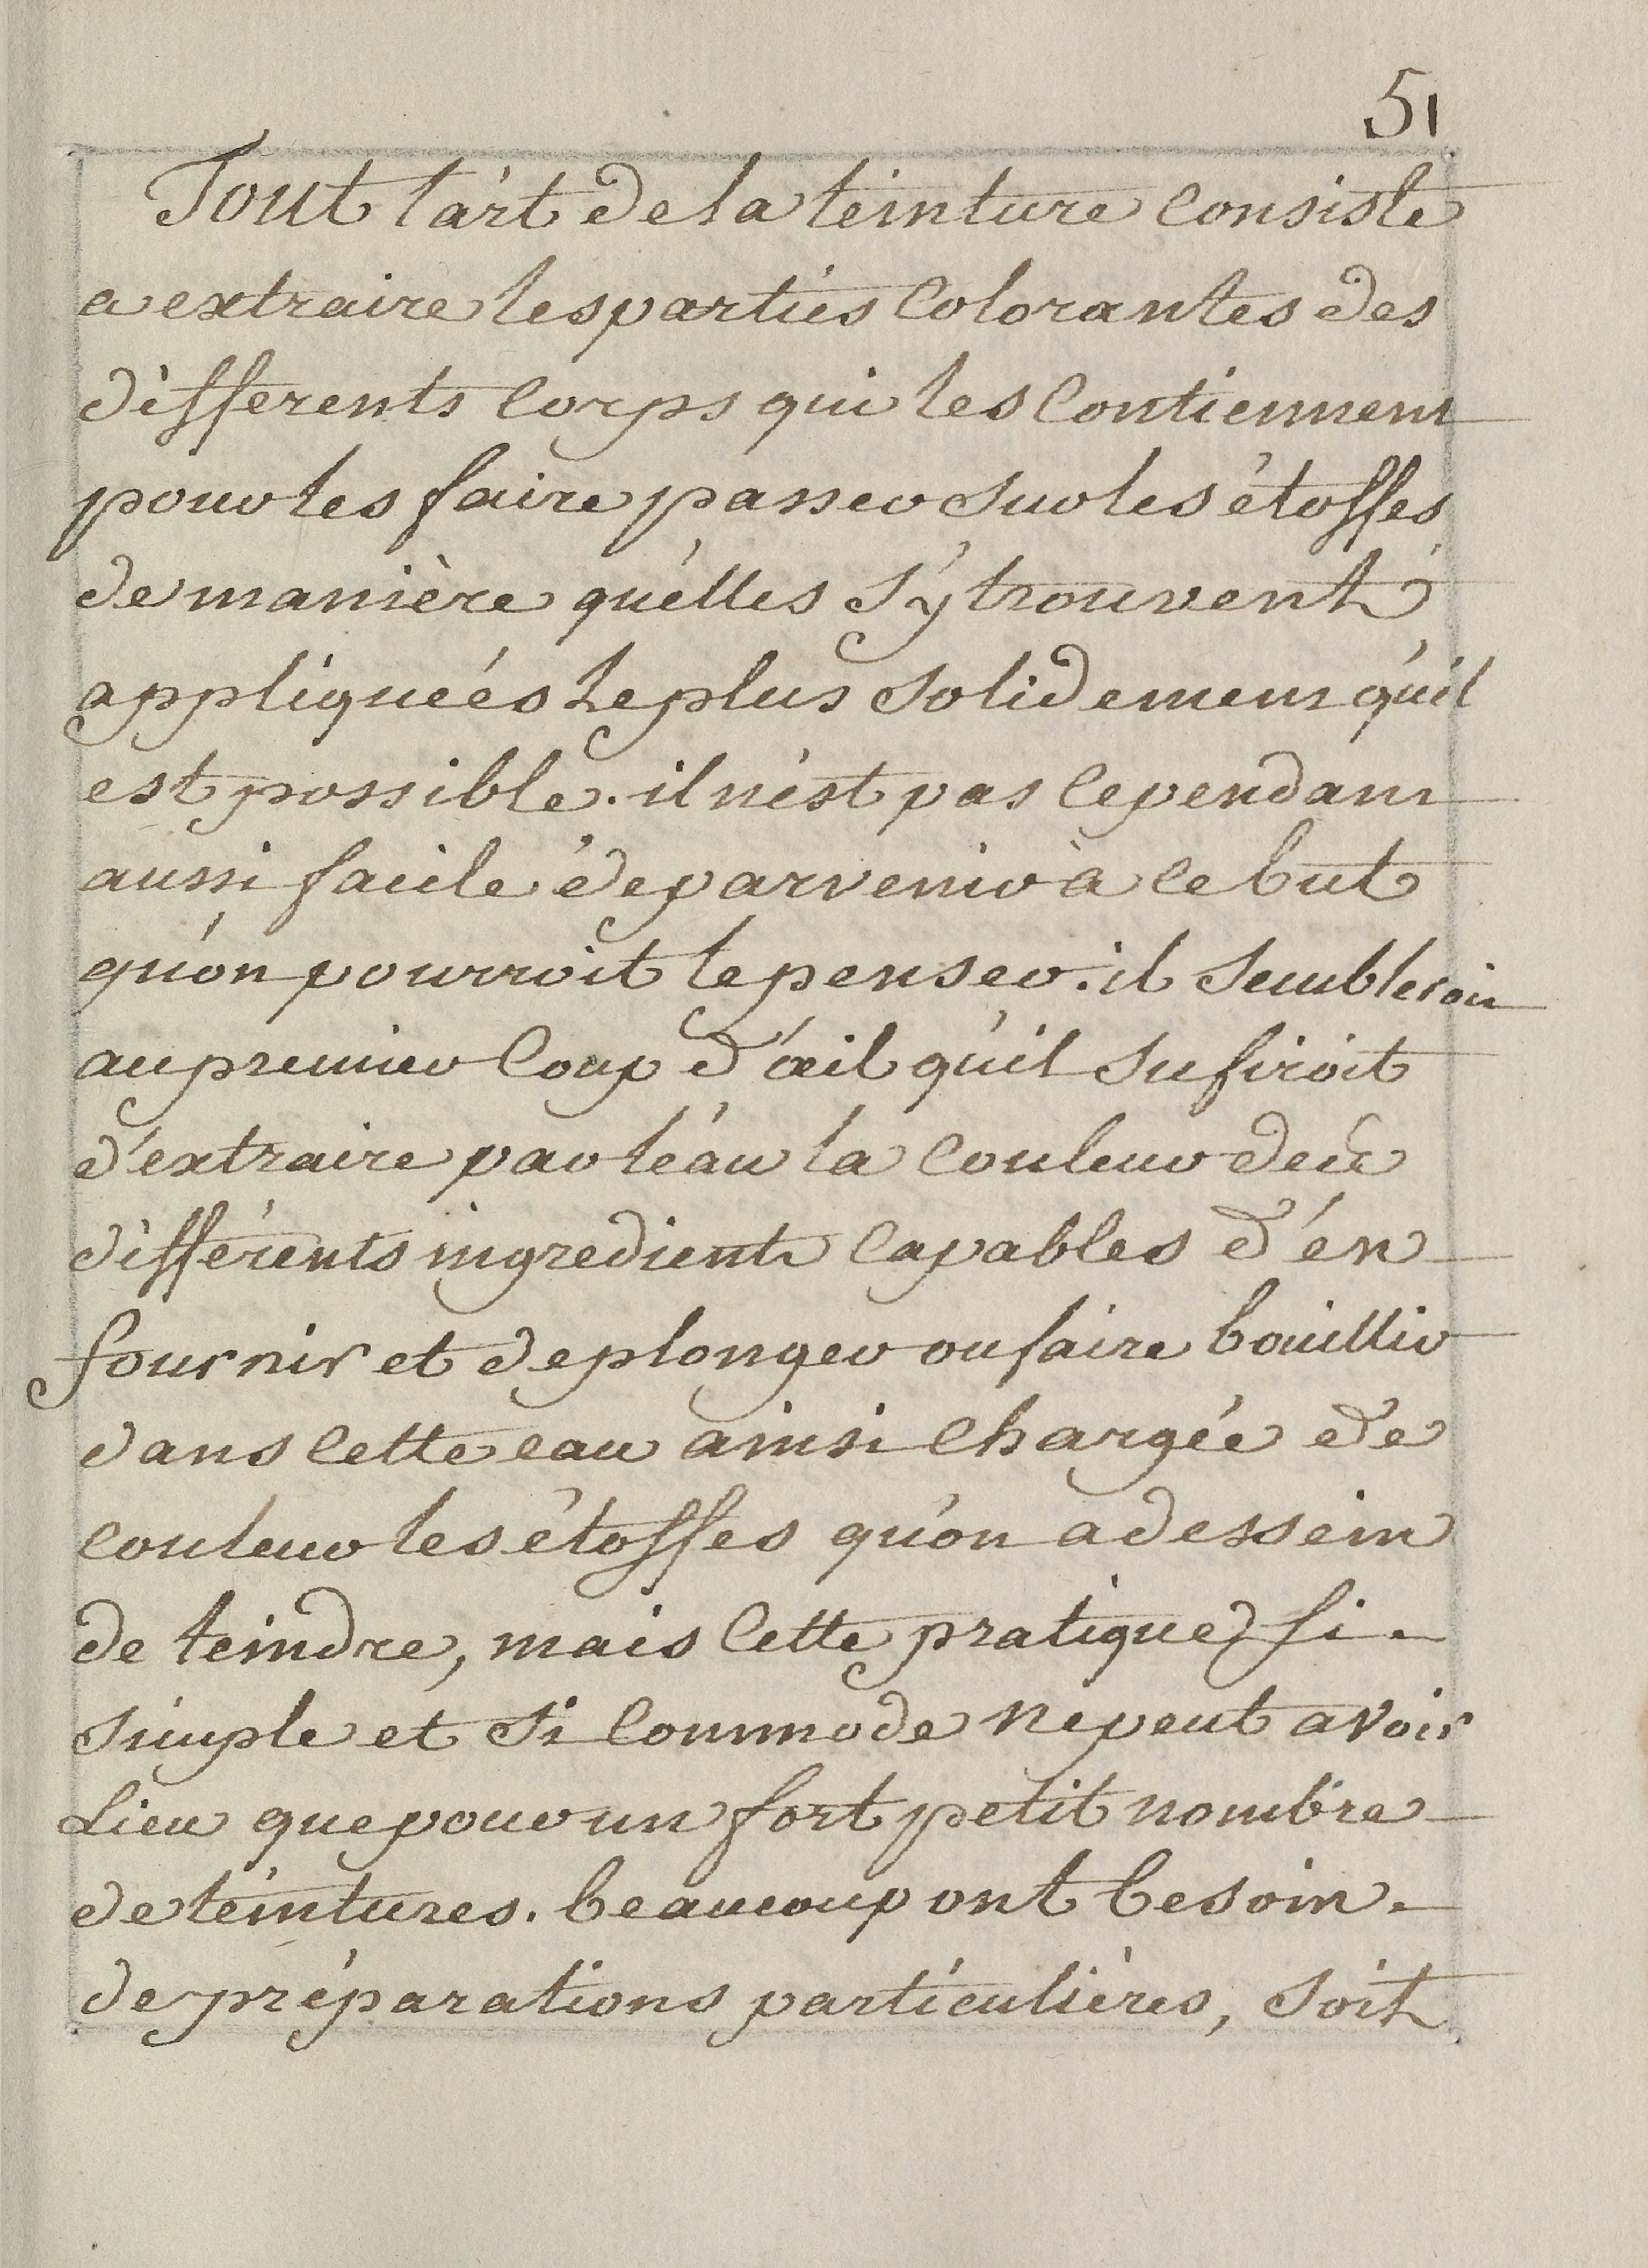 51
Tout l'art de la teinture consiste
a extraire les parties colorantes des
différents corps qui les contiennent
pour les faire passer sur les étoffes
de manière qu'elles s'y trouvent
appliquées le plus solidement qu'il
est possible. il n'est pas cependant
aussi facile de parvenir à ce but
qu'on pourroit le penser. il sembleroit
au premier coup d'œil qu'il sufiroit
d'extraire par l'eau la couleur des
différents ingredients capables d'en
fournir et de plonger ou faire bouillir
dans cette eau ainsi chargée de
couleur les étoffes qu'on a dessein
de teindre, mais cette pratique si
simple et si commode ne peut avoir
Lieu que pour un fort petit nombre
de teintures. beaucoup ont besoin
de préparations particulières, soit